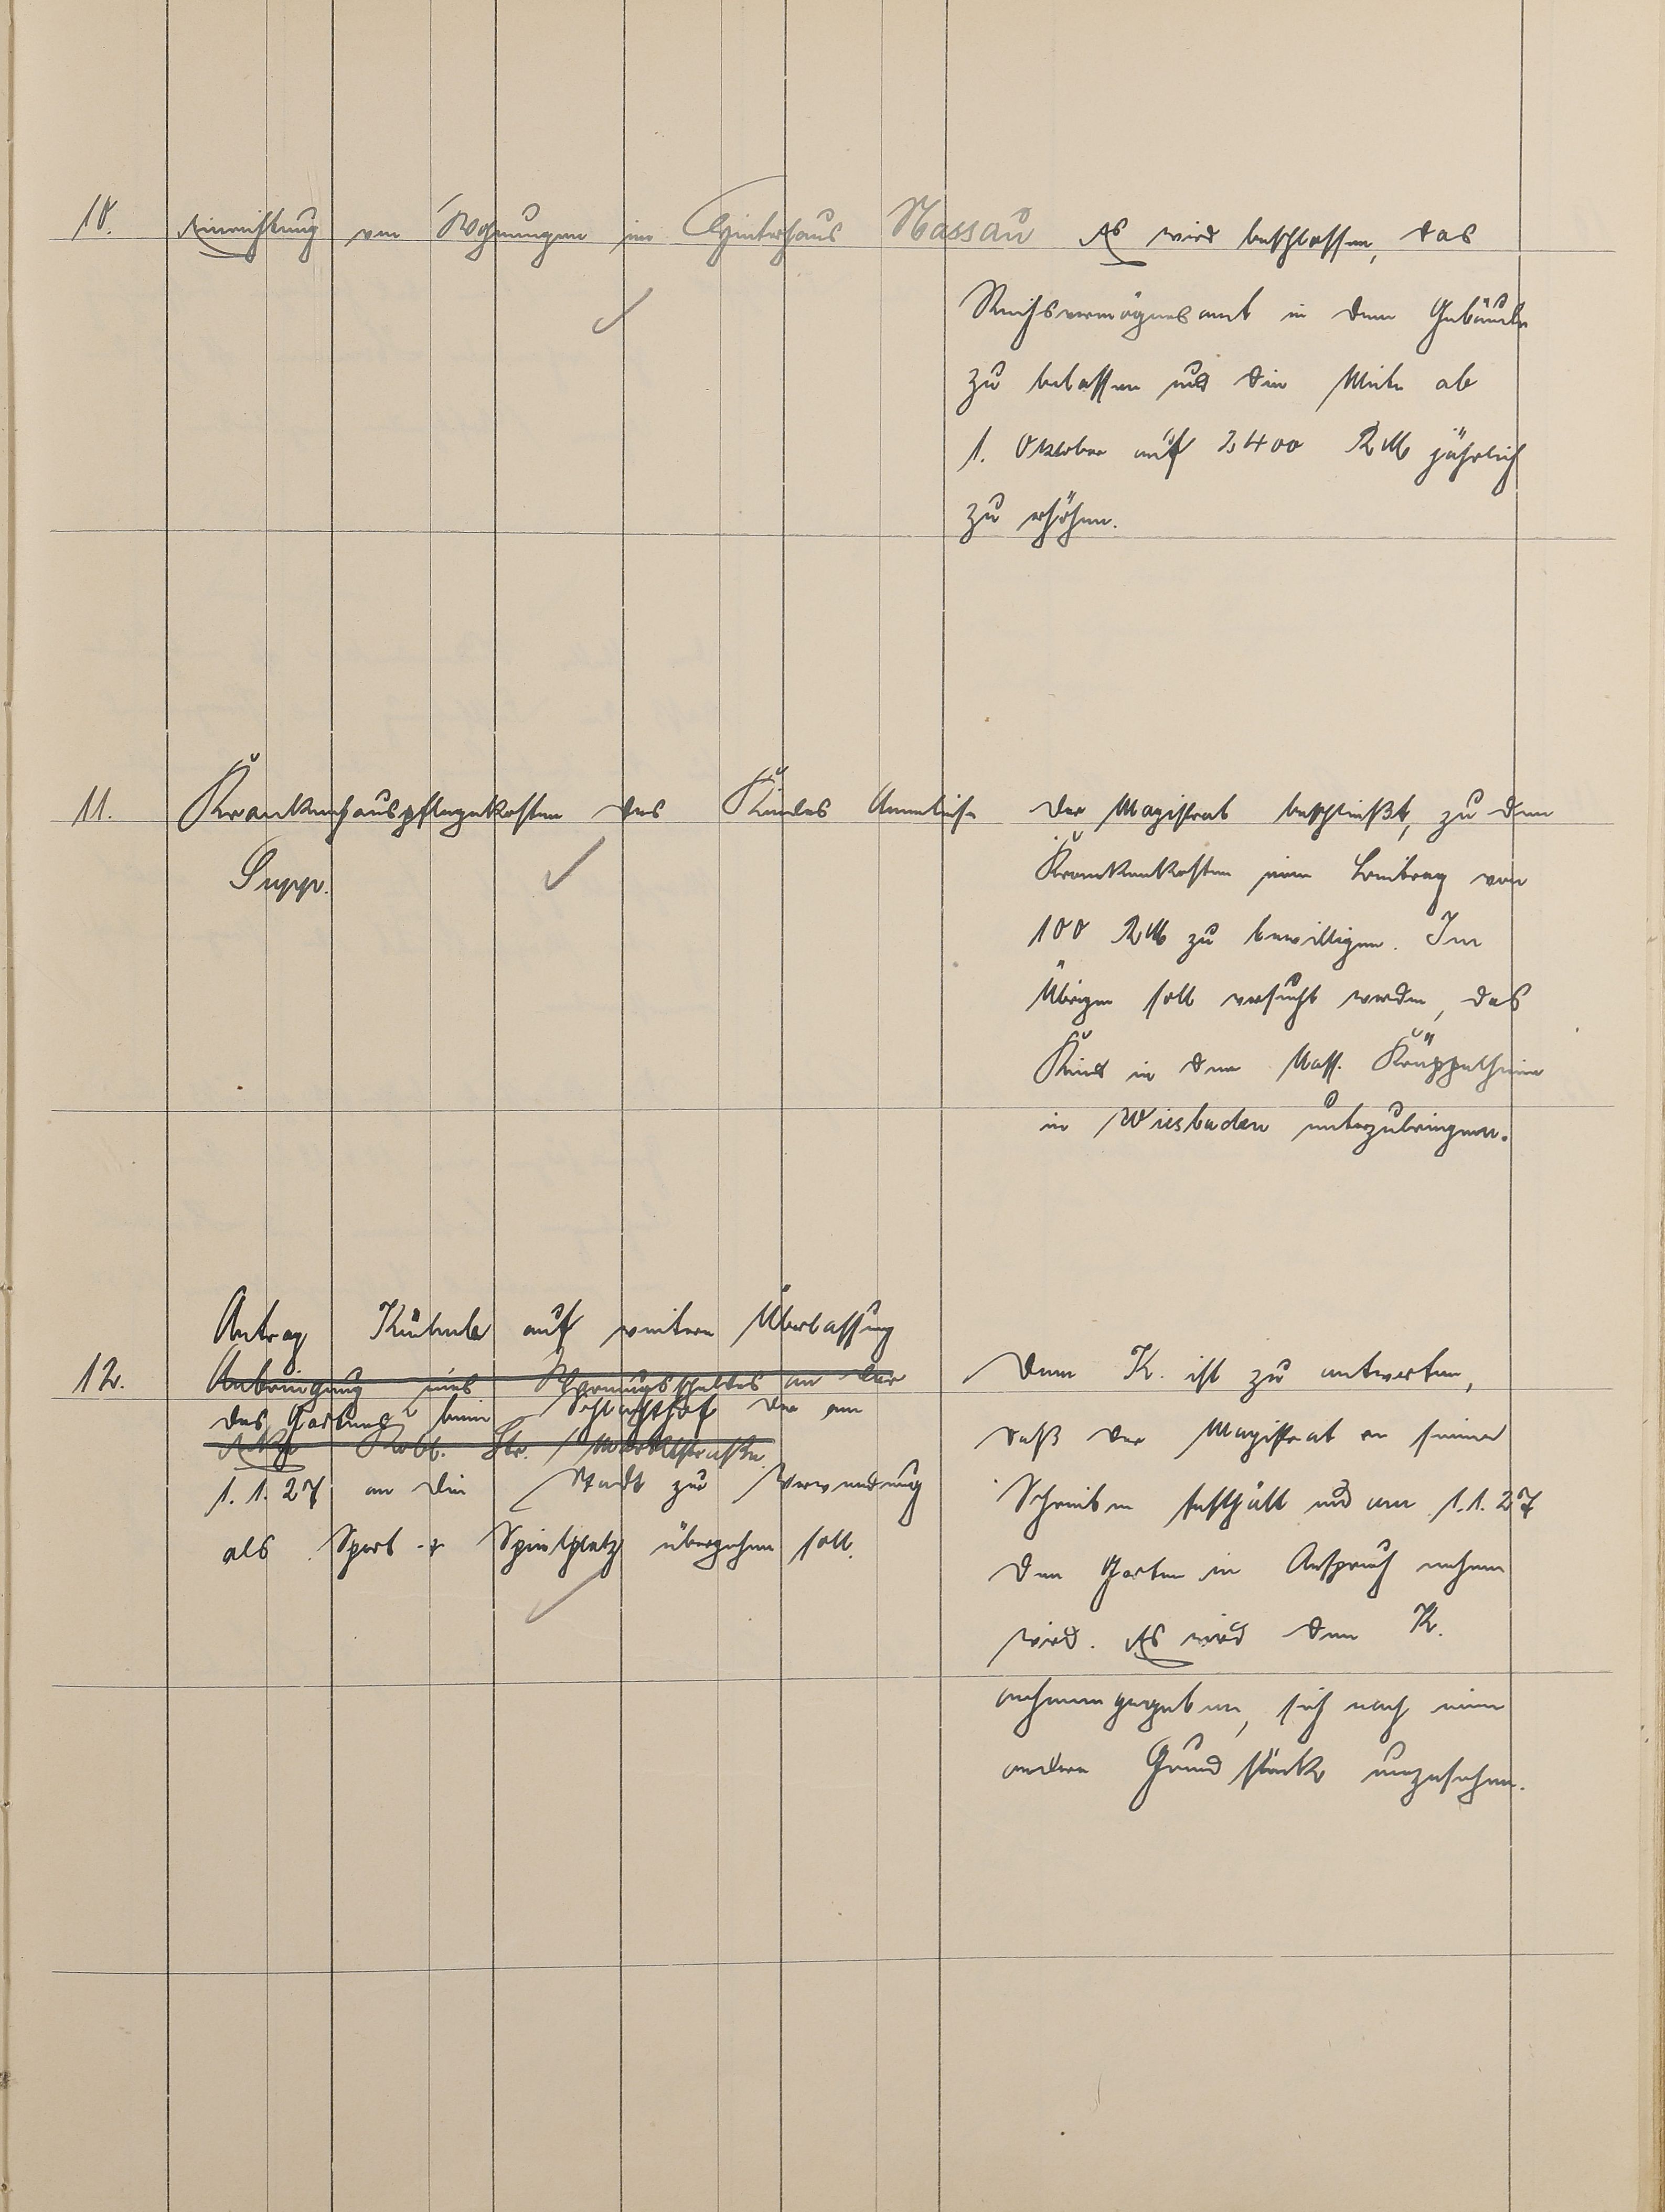 10.
Einrichtung von Wohnungen im Hinterhaus Nassau
Es wird beschlossen, das
Reichsvermögensamt in dem Gebäude
zu belassen und die Miete ab
1. Oktober auf 2400 RM jährlich
zu erhöhen.
11.
Krankenhauspflegekosten des Kindes Anneliese
Supp.
Der Magistrat beschließt, zu den
Krankenkosten einen Beitrag von
100 RM zu bewilligen. Im
Übrigen soll versucht werden, das
Kind in dem Nass. Krüppelheim
in Wiesbaden unterzubringen.
12.
Antrag auf weitere Überlassung
Anbringung eines Warnungsschildes an der
des Gartens beim Schlachthof der am
Ecke Str. / Marktstraße.
1.1.27 an die Stadt zur Verwendung
als Sport- & Spielplatz übergehen soll.
Dem K. ist zu antworten,
daß der Magistrat an seinem
Schreiben festhält und am 1.1.27
den Garten in Anspruch nehmen
wird. Es wird dem K.
anheimgegeben, sich nach einem
anderen Grundstück umzusehen.